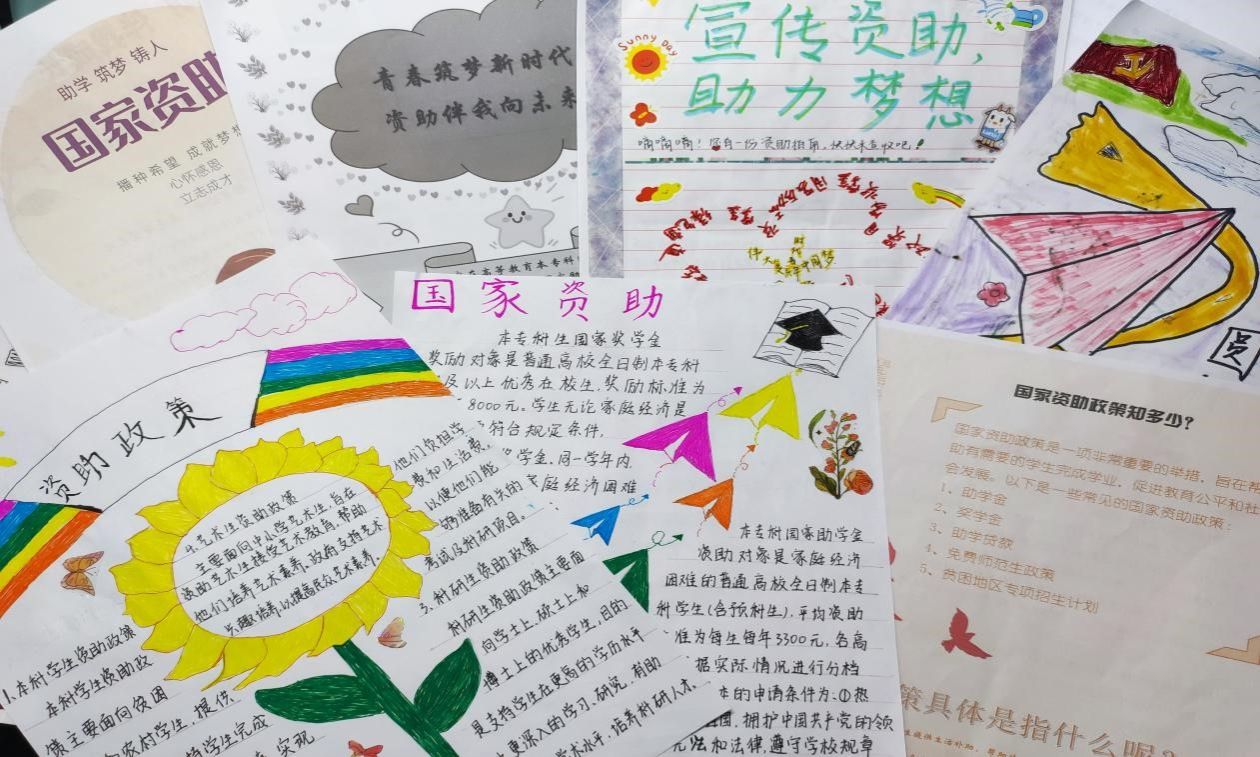 助学 筑梦 铸人
国家资助
播种希望 成就梦想
心怀感恩
立志成才
青春筑梦新时代
资助伴我向未来
Sunny Day
宣传资助,
助力梦想
嘀嘀嘀!
国家资助
本专科生国家奖学金
奖励对象是普通高校全日制本专科
及以上优秀在校生,奖励标准为
8000元。学生无论家庭经济是
符合规定条件,
学金,同一学年内,
庭经济困难
本专科国家助学金
资助对象是家庭经济
困难的普通高校全日制本专
科学生(含预科生),平均资助
准为每生每年3300元,各高
据实际情况进行分档
的申请条件为:①热
国,拥护中国共产党的领
宪法和法律,遵守学校规章
资助政策
艺术生资助政策
主要面向中小学艺术生,旨在
资助艺术生接受艺术教育,帮助
他们培养艺术素养。政府支持艺术
兴趣培养以提高民众艺术素养
他们负担学
费和生活费。
以便他们能
够准备有关的
考试及科研项目。
3.科研生资助政策
科研生资助政策主要面
向学士上,硕士上和
博士上的优秀学生,目的
是支持学生在更高的学历水平
上更深入的学习、研究,有助
学术水平,培养科研人才
1.本科学生资助政策
本科学生资助政
策主要面向贫困
农村学生,提供
学生完成
实现
国家资助政策知多少?
国家资助政策是一项非常重要的举措,旨在帮
助有需要的学生完成学业,促进教育公平和社
会发展。以下是一些常见的国家资助政策:
1、助学金
2、奖学金
3、助学贷款
4、免费师范生政策
5、贫困地区专项招生计划
策具体是指什么呢?